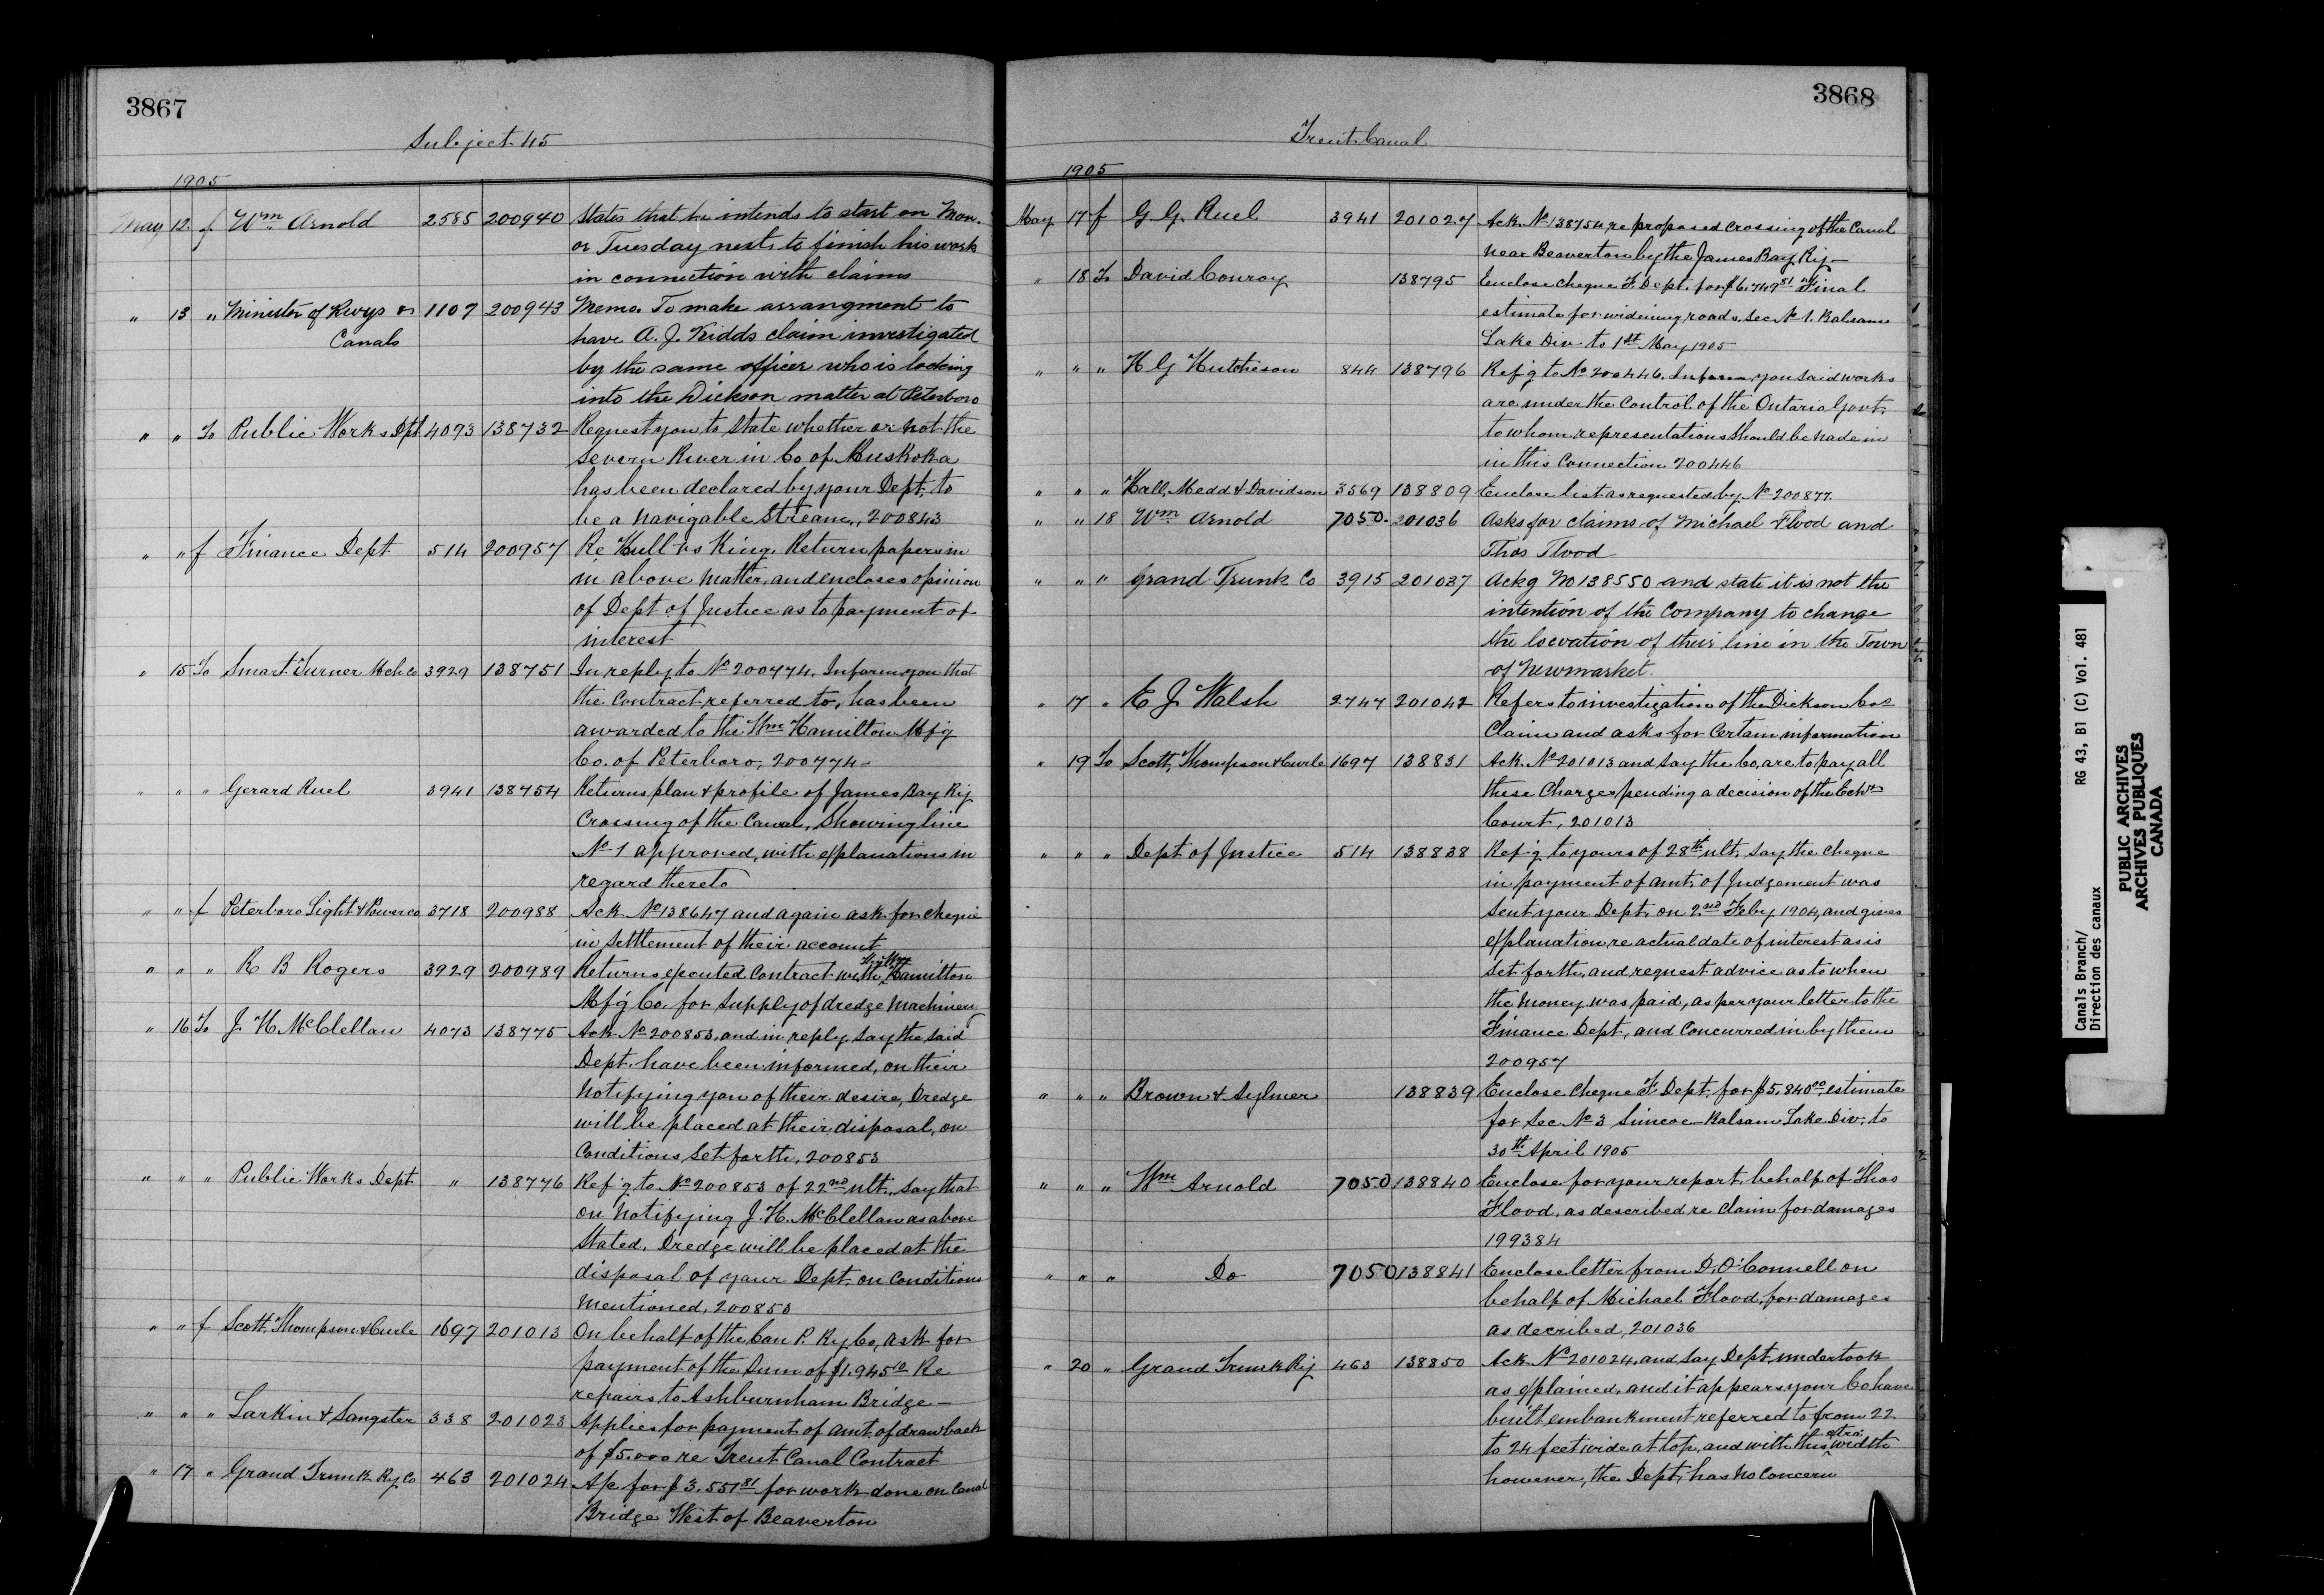 3867
Subject 45
1905
May 12 f Wm Arnold 2585 200940 States that he intends to start on Mon.
or Tuesday next to finish his work
in connection with claims
" 13 " Minister of Rwys & 1107 200943 Memo. To make arrangment to
Canals have A. J. Kidds claim investigated
by the same officer who is looking
into the Dickson matter at Peterboro
" " To Public Works Dpt 4073 138732 Request you to state whether or not the
Severn River in Co of Muskoka
has been declared by your Dept, to
be a navigable Stream, 200843
" " f Finance Dept 514 200957 Re Hull vs King. Return papers in
in above matter, and encloses opinion
of Dept of Justice as to payment of
interest
" 15 To Smart Turner Mch Co 3929 138751 In reply to No 200774. Inform you that
the Contract referred to, has been
awarded to the Wm Hamilton Mfg
Co. of Peterboro, 200774-
" " " Gerard Ruel 3941 138754 Returns plan & profile of James Bay Ry
Crossing of the Canal, Showing line
No 1 approved, with explanations in
regard thereto
" " f Peterboro Light & Power Co 3718 200988 Ack. No 138647 and again ask for cheque
in Settlement of their account
" " " R B Rogers 3929 200989 Returns executed Contract with Hamilton
Mf'g Co. for Supply of dredge Machinery
" 16 To J. H. McClellan 4073 138775 Ack. No 200853, and in reply, say the said
Dept. have been informed, on their
Notifying you of their desire, Dredge
will be placed at their disposal, on
Conditions Set forth, 200853
" " " Public Works Dept " 138776 Ref'g to No 200853 of 22nd ult., say that
on Notifying J. H. McClellan as above
Stated, Dredge will be placed at the
disposal of your Dept. on Conditions
Mentioned, 200853
" " f Scott, Thompson & Curle 1697 201013 On behalf of the Can P. Ry Co, ask for
payment of the Sum of $1,945 10 Re
repairs to Ashburnham Bridge -
" " " Larkin & Sangster 338 201023 Applies for payment of amt. of drawback
of $5.000 re Trent Canal Contract
" 17 " Grand Trunk Ry Co 463 201024 A/c for $3,551 81 for work done on Canal
Bridge West of Beaverton
3868
Trent Canal
1905
May 17 f G. G. Ruel 3941 201027 Ack. No 138754 re proposed crossing of the Canal
near Beaverton by the James Bay Ry -
" 18 To David Conroy 138795 Enclose cheque F. Dept. for $6,749 81 Final
estimate for widening roads. Sec No 1. Balsam
Lake Div. to 1st May 1905
" " " H G Hutcheson 844 138796 Ref'g to No 200446. Inform you said works
are under the Control of the Ontario Govt,
to whom representations should be made in
in this Connection 200446
" " " Hall, Medd & Davidson 3569 138809 Enclose list as requested by No 200877.
" " 18 Wm Arnold 7050. 201036 Asks for claims of Michael Flood and
Thos Flood
" " " Grand Trunk Co 3915 201037 Ackg No 138550 and state it is not the
intention of the Company to change
the locvation of their line in the Town
of Newmarket.
" 17 " E J Walsh 2747 201042 Refers to investigation of the Dickson Cos
Claim and asks for Certain information
" 19 To Scott, Thompson & Curle 1697 138831 Ack. No 201013 and say the Co, are to pay all
these Charges pending a decision of the Echr
Court, 201013
" " " Dept of Justice 514 138838 Ref'g to yours of 28th ult, say the cheque
in payment of amt. of Judgement was
sent your Dept. on 2nd Feby, 1904, and gives
explanation re actual date of interest as is
set forth, and request advice as to when
the money was paid, as per your letter to the
Finance Dept, and Concurred in by them
200957
" " " Brown & Aylmer 138839 Enclose Cheque F. Dept. for $5,840 00, estimate
for Sec No 3 Simcoe-Balsam Lake Div. to
30th April 1905
" " " Wm Arnold 7050 138840 Enclose for your report, behalf of Thos
Flood, as described re Claim for damages
199384
" " " Do 7050 138841 Enclose letter from D. O'Connell on
behalf of Michael Flood, for damages
as decribed, 201036
" 20 " Grand Trunk Ry 463 138850 Ack. No 201024, and say Dept, undertook
as explained, and it appears your Co have
built embankment referred to from 22
to 24 feet wide at top, and with this extra width
however, the Dept, has no Concern
Canals Branch/
Direction des canaux
RG 43, B1 (C) Vol. 481
PUBLIC ARCHIVES
ARCHIVES PUBLIQUES
CANADA